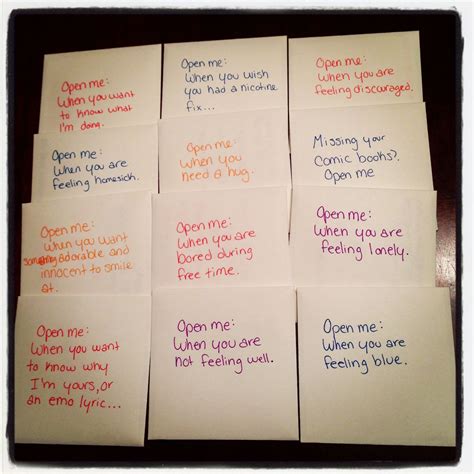 Open me:
When you want
to know what
I'm doing.
Open me:
When you wish
you had a nicotine
fix...
Open me:
When you are
feeling discouraged.
Open me:
When you are
feeling homesick.
Open me:
When you
need a hug.
Missing your
Comic books?
Open me
Open me:
When you want
something adorable and
innocent to smile
at.
Open me:
When you are
bored during
free time.
Open me:
When you are
feeling lonely.
Open me:
When you want
to know why
I'm yours, or
an emo lyric...
Open me:
When you are
not feeling well.
Open me:
When you are
feeling blue.